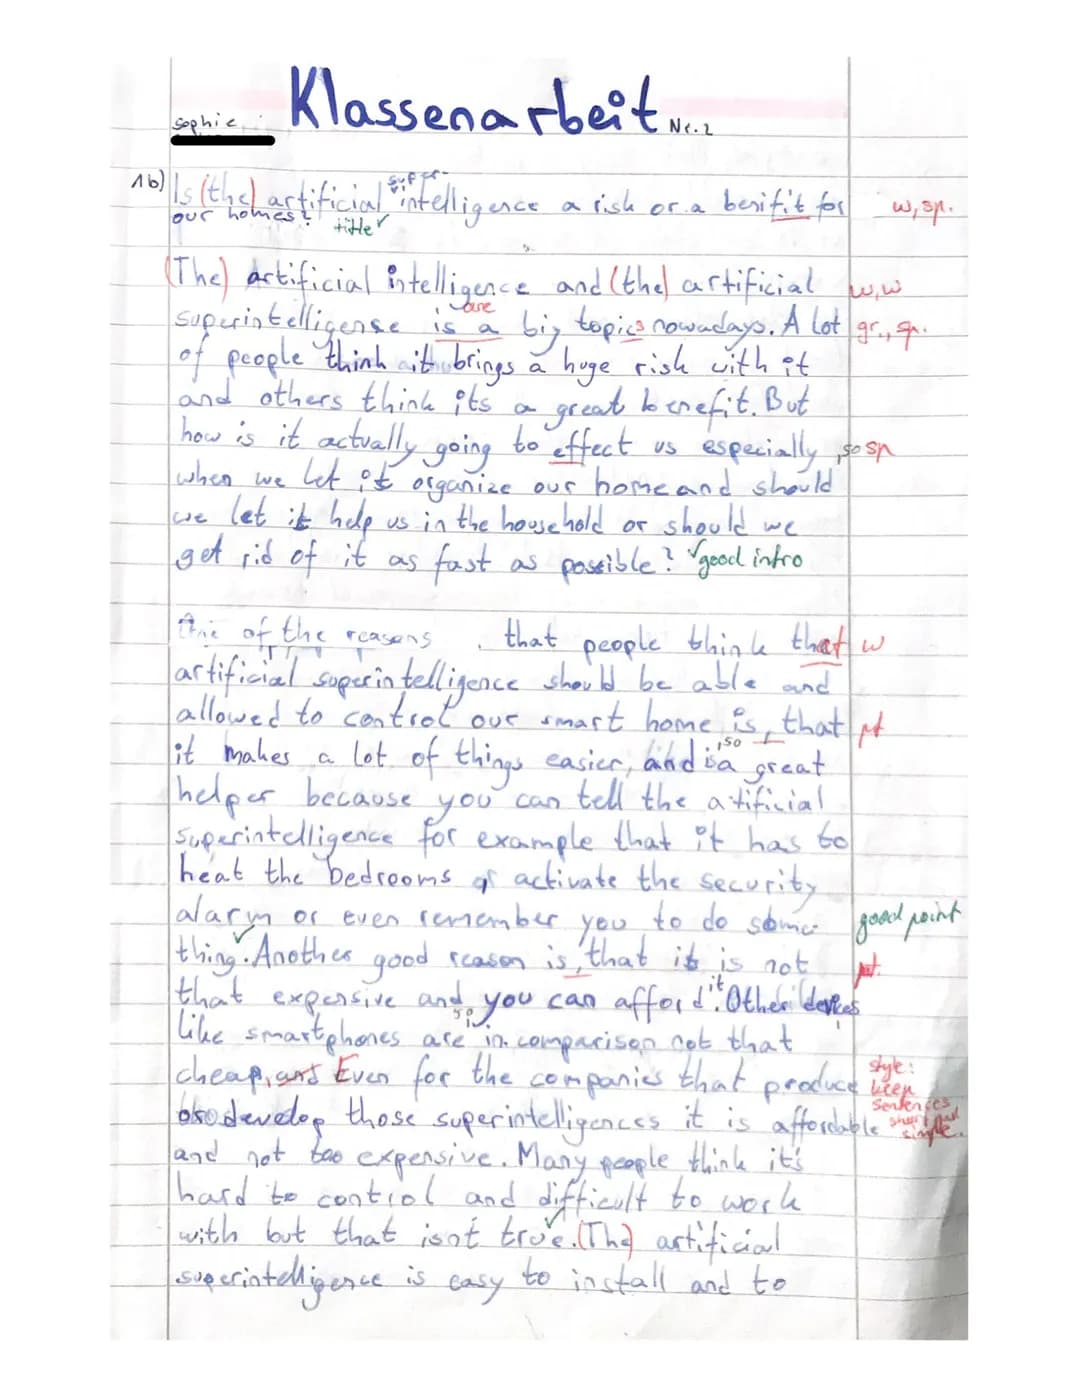 Klassenarbeit Nr. 2
Sophie
1b) Is (the) artificial super-intelligence a risk or a benifit for w, sp.
our homes? title ✓
(The) artificial intelligence and (the) artificial w, w
are
superintelligense is a big topics nowadays. A lot gr., sp.
of people think it brings a huge risk with it
and others think its a great benefit. But
how is it actually going to effect us especially, so sp
when we let it organize our home and should
we let it help us in the household or should we
get rid of it as fast as possible? ✓ good intro
One of the reasons that people think that w
artificial superintelligence should be able and
allowed to control our smart home is, that pt
, so
it makes a lot of things easier, and is a great
helper because you can tell the atificial
superintelligence for example that it has to
heat the bedrooms or activate the security
alarm or even remember you to do some- good point
thing. ✓ Another good reason is, that it is not pt.
that expensive and you can afford it. Other devices
like smartphones are in comparison not that
cheap, and Even for the companies that produce style: keep
sentences
develop those superintelligences it is affordable short and
simple.
and not too expensive. Many people think it's
hard to control and difficult to work
with but that isn't true. ✓ (The) artificial
superintelligence is easy to install and to